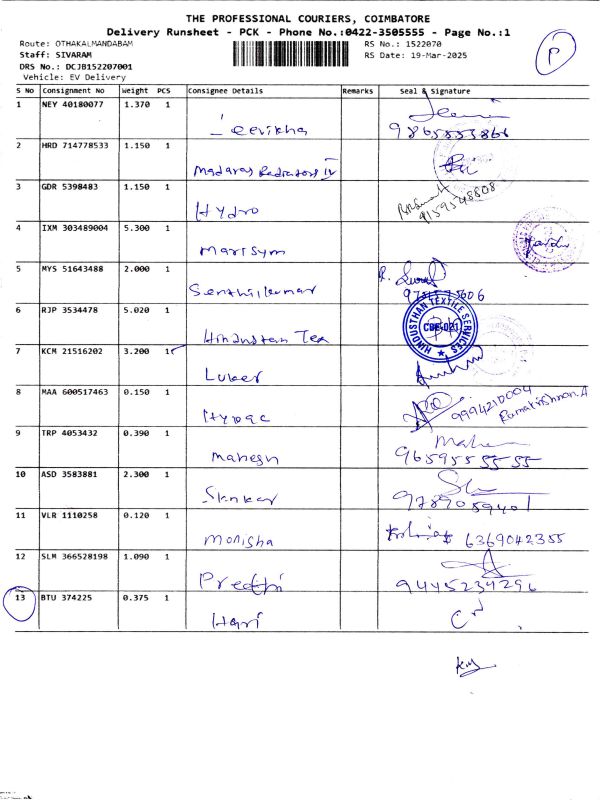 THE PROFESSIONAL COURIERS, COIMBATORE
Delivery Runsheet - PCK - Phone No.:0422-3505555 - Page No.:1
Route: OTHAKALMANDABAM
RS No.: 1522070
Staff: SIVARAM
RS Date: 19-Mar-2025
DRS No.: DCJB152207001
Vehicle: EV Delivery
P
S No Consignment No Weight PCS Consignee Details Remarks Seal & Signature
1 NEY 40180077 1.370 1
2 HRD 714778533 1.150 1 Madaras Radiators IV
3 GDR 5398483 1.150 1 Hydro
9159548808
4 IXM 303489004 5.300 1 Marisym
5 MYS 51643488 2.000 1 Senthilkumar
6 RJP 3534478 5.020 1 Hindustan Tex
HINDUSTHAN TEXTILE SERVICES
CBE-021
7 KCM 21516202 3.200 1 Luker
8 MAA 600517463 0.150 1
9994210004
Ramakrishnan.A
9 TRP 4053432 0.390 1 Mahesh
9659555555
10 ASD 3583881 2.300 1
9789059401
11 VLR 1110258 0.120 1 Monisha 6369042355
12 SLM 366528198 1.090 1 Preethi
9445234296
13 BTU 374225 0.375 1 Hari